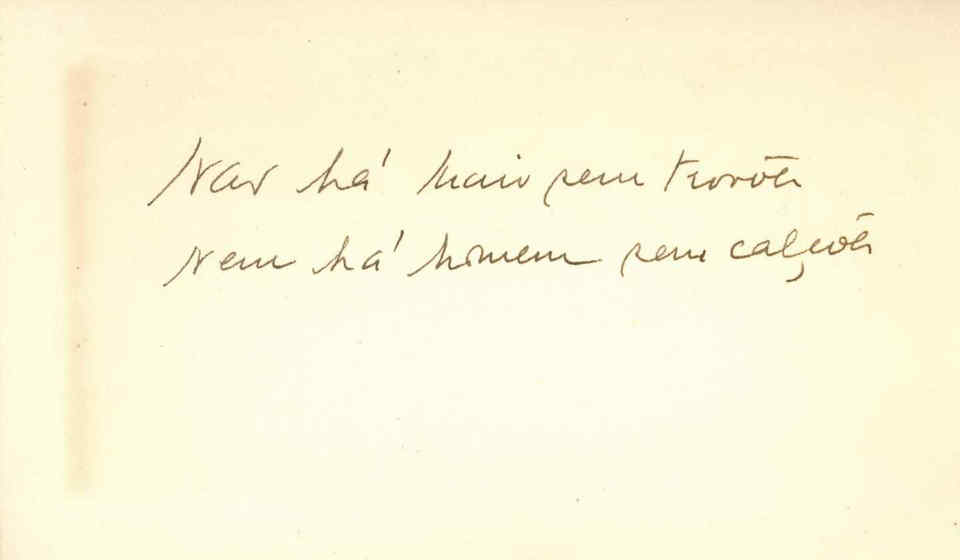 Não há maio sem trovões
Nem há homem sem calções